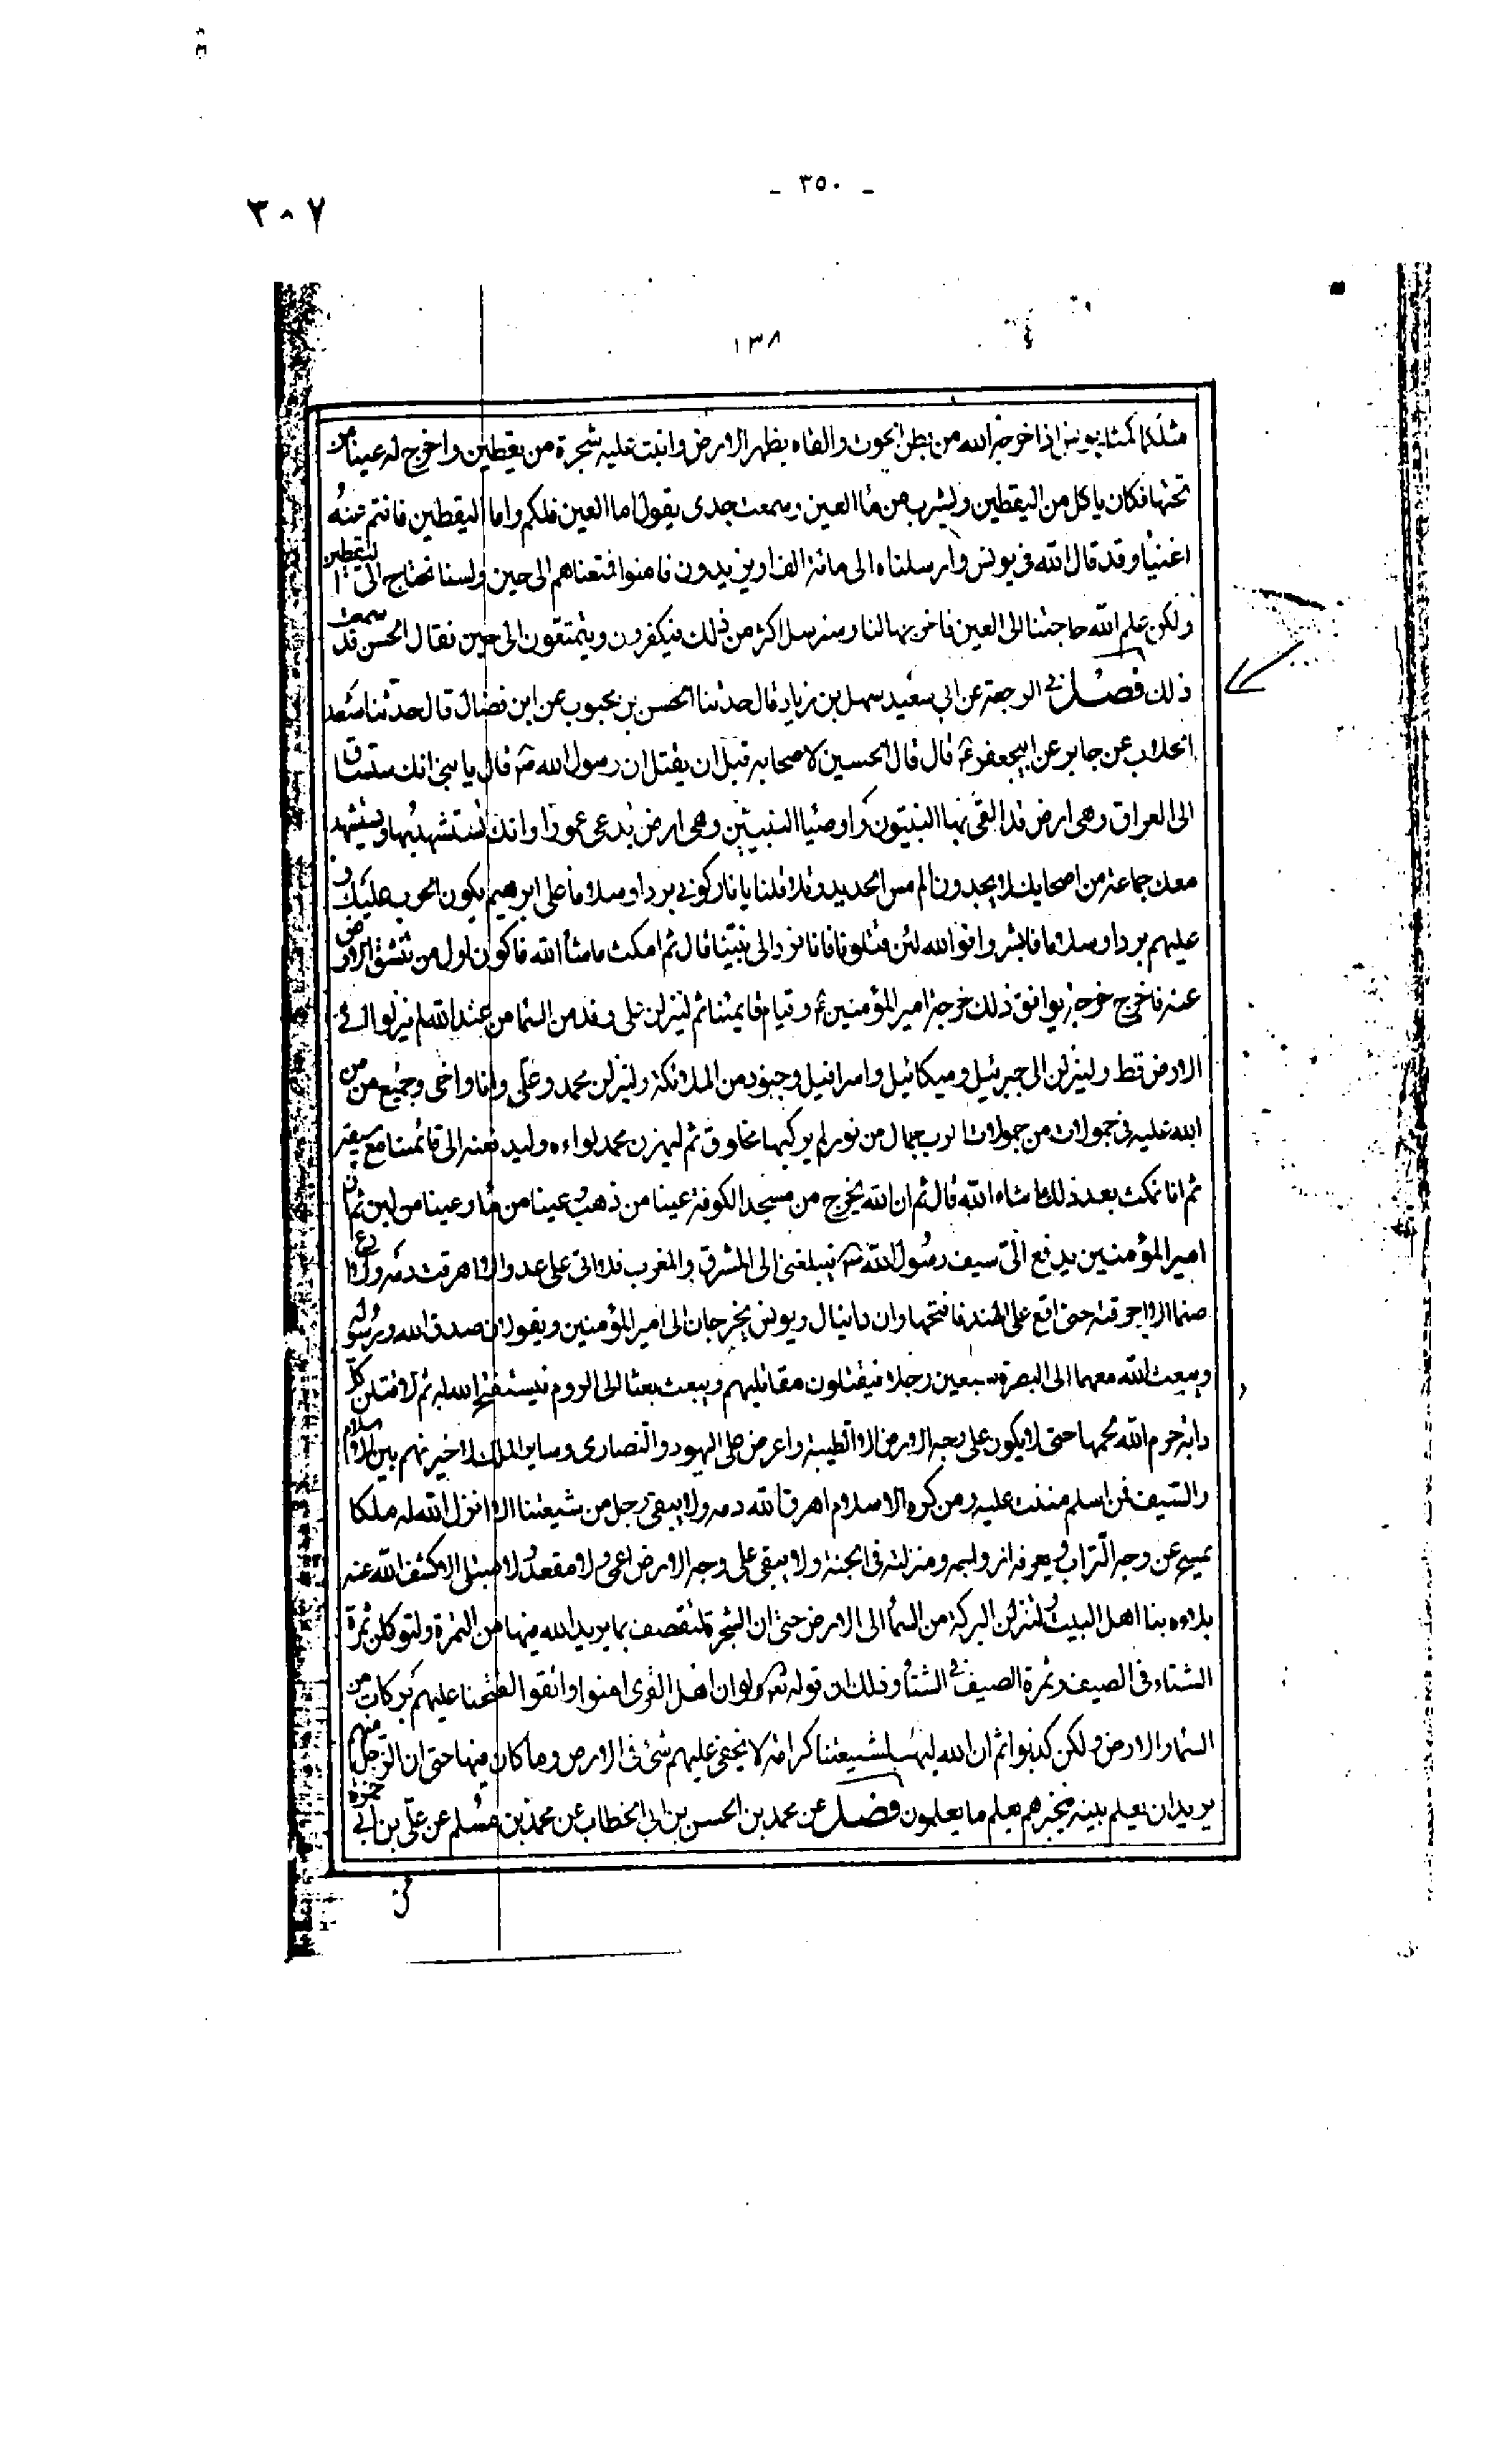 - ٣٥٠ -
٣٠٧
١٣٨
مثلكم كمثل يونس اذ اخرجه الله من بطن الحوت والقاه بظهر الارض وانبت عليه شجرة من يقطين واخرج له عينا من
تحتها فكان ياكل من اليقطين ويشرب من ماء العين وسمعت جدى يقول اما العين فلكم واما اليقطين فانتم عنه
اغنياء وقد قال الله فى يونس وارسلناه الى مائة الف او يزيدون فامنوا فمتعناهم الى حين ولسنا نحتاج الى اليقطين
ولكن علم الله حاجتنا الى العين فاخرجها لنا وسنرسل اكثر من ذلك فيكفرون ويتمتعون الى حين فقال الحسن قد سمعت
ذلك فصل فى الرجعة عن ابى سعيد سهل بن زياد قال حدثنا الحسن بن محبوب عن ابن فضال قال حدثنا سعد
الجلاب عن جابر عن ابيجعفر ع قال قال الحسين لاصحابه قبل ان يقتل ان رسول الله ص قال يا بنى انك ستساق
الى العراق وهى ارض قد التقى بها النبيون واوصياء النبيين وهى ارض تدعى عمورا وانك تستشهد بها ويستشهد
معك جماعة من اصحابك لا يجدون الم مس الحديد وتلا قلنا يا نار كونى بردا وسلاما على ابرهيم يكون الحرب عليك و
عليهم بردا وسلاما فابشروا فوالله لئن قتلونا فانا نرد الى نبينا قال ثم امكث ما شاء الله فاكون اول من تنشق الارض
عنه فاخرج خرجة يوافق ذلك خرجة امير المؤمنين ع وقيام قائمنا ثم لينزلن على وفد من السماء من عند الله لم ينزلوا الى
الارض قط ولينزلن الى جبرئيل وميكائيل واسرافيل وجنود من الملائكة ولينزلن محمد وعلى وانا واخى وجميع من من
الله عليه فى حمولات من حمولات الرب جمال من نور لم يركبها مخلوق ثم ليهزن محمد لواءه وليدفعنه الى قائمنا مع سيفه
ثم انا نمكث بعد ذلك ما شاء الله قال ثم ان الله يخرج من مسجد الكوفة عينا من ذهب وعينا من ماء وعينا من لبن ثم ان
امير المؤمنين يدفع الى سيف رسول الله ص فيبلغنى الى المشرق والمغرب فلا اتى على عدو الا اهرقت دمه ولا ادع
صنما الا احرقته حتى اقع على الهند فافتحها وان دانيال ويونس يخرجان الى امير المؤمنين ويقولان صدق الله ورسوله
ويبعث الله معهما الى البصرة سبعين رجلا فيقتلون مقاتليهم ويبعث بعثا الى الروم فيستفتح الله له ثم لاقتلن كل
دابة حرم الله لحمها حتى لا يكون على وجه الارض الا الطيبة واعرض على اليهود والنصارى وساير الملل لاخيرنهم بين الاسلام
والسيف فمن اسلم مننت عليه ومن كره الاسلام اهرق الله دمه ولا يبقى رجل من شيعتنا الا انزل الله له ملكا
يمسح عن وجه التراب ويعرفه ازواجه ومنزلته فى الجنة ولا يبقى على وجه الارض اعمى ولا مقعد ولا مبتلى الا كشف الله عنه
بلاءه بنا اهل البيت ولتنزلن البركة من السماء الى الارض حتى ان الشجرة لتقصف بما يريد الله فيها من الثمرة ولتوكلن ثمرة
الشتاء فى الصيف وثمرة الصيف فى الشتاء وذلك ان قوله تعالى ولو ان اهل القرى امنوا واتقوا لفتحنا عليهم بركات من
السماء والارض ولكن كذبوا ثم ان الله ليهب لشيعتنا كرامة لا يخفى عليهم شئ فى الارض وما كان فيها حتى ان الرجل منهم
يريد ان يعلم بيته فيخبرهم بعلم ما يعلمون فصل عن محمد بن الحسن بن ابى الخطاب عن محمد بن مسلم عن على بن ابى حمزة